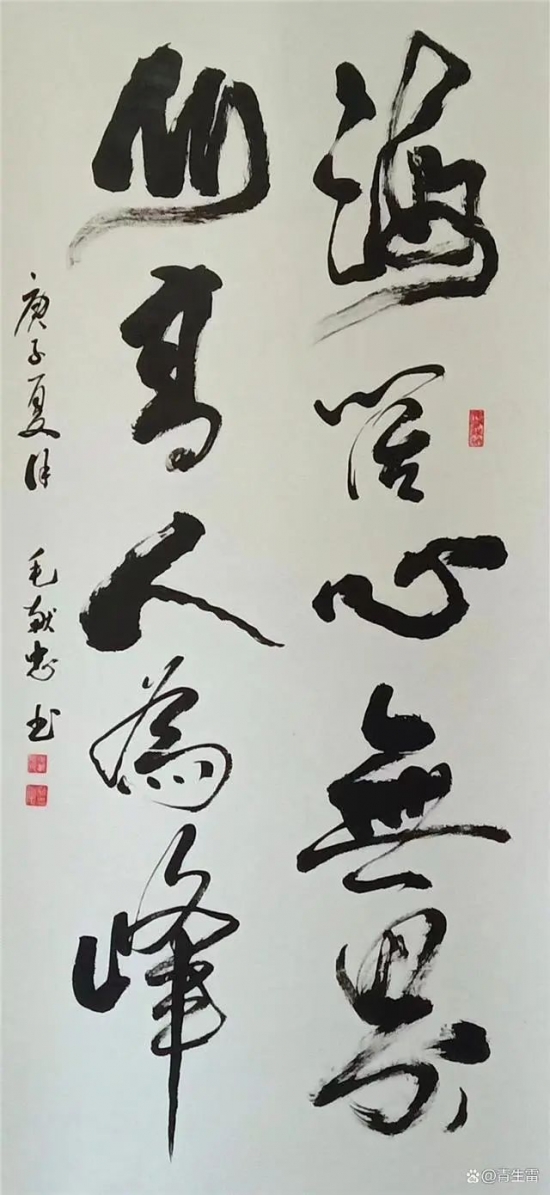 海闊心無界
山高人為峰
庚子夏 毛献忠书
青生雷